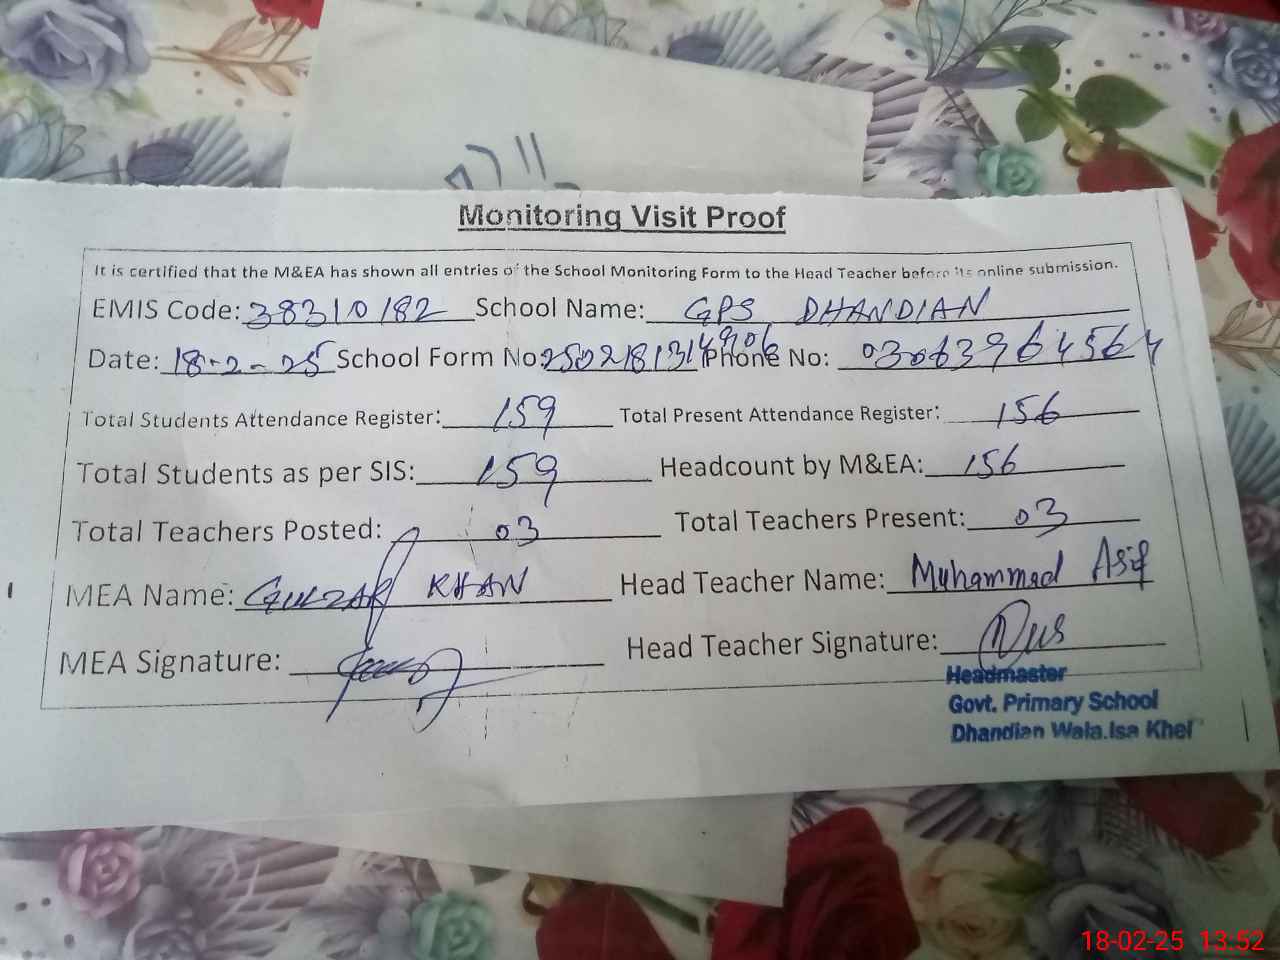 Monitoring Visit Proof
It is certified that the M&EA has shown all entries of the School Monitoring Form to the Head Teacher before its online submission.
EMIS Code: 38310182 School Name: GPS DHANDIAN
Date: 18-2-25 School Form No: 2502181314906 Phone No: 03063964564
Total Students Attendance Register: 159 Total Present Attendance Register: 156
Total Students as per SIS: 159 Headcount by M&EA: 156
Total Teachers Posted: 03 Total Teachers Present: 03
MEA Name: GULZAR KHAN Head Teacher Name: Muhammad Asif
MEA Signature: Head Teacher Signature:
Headmaster
Govt. Primary School
Dhandian Wala.Isa Khel
18-02-25 13:52